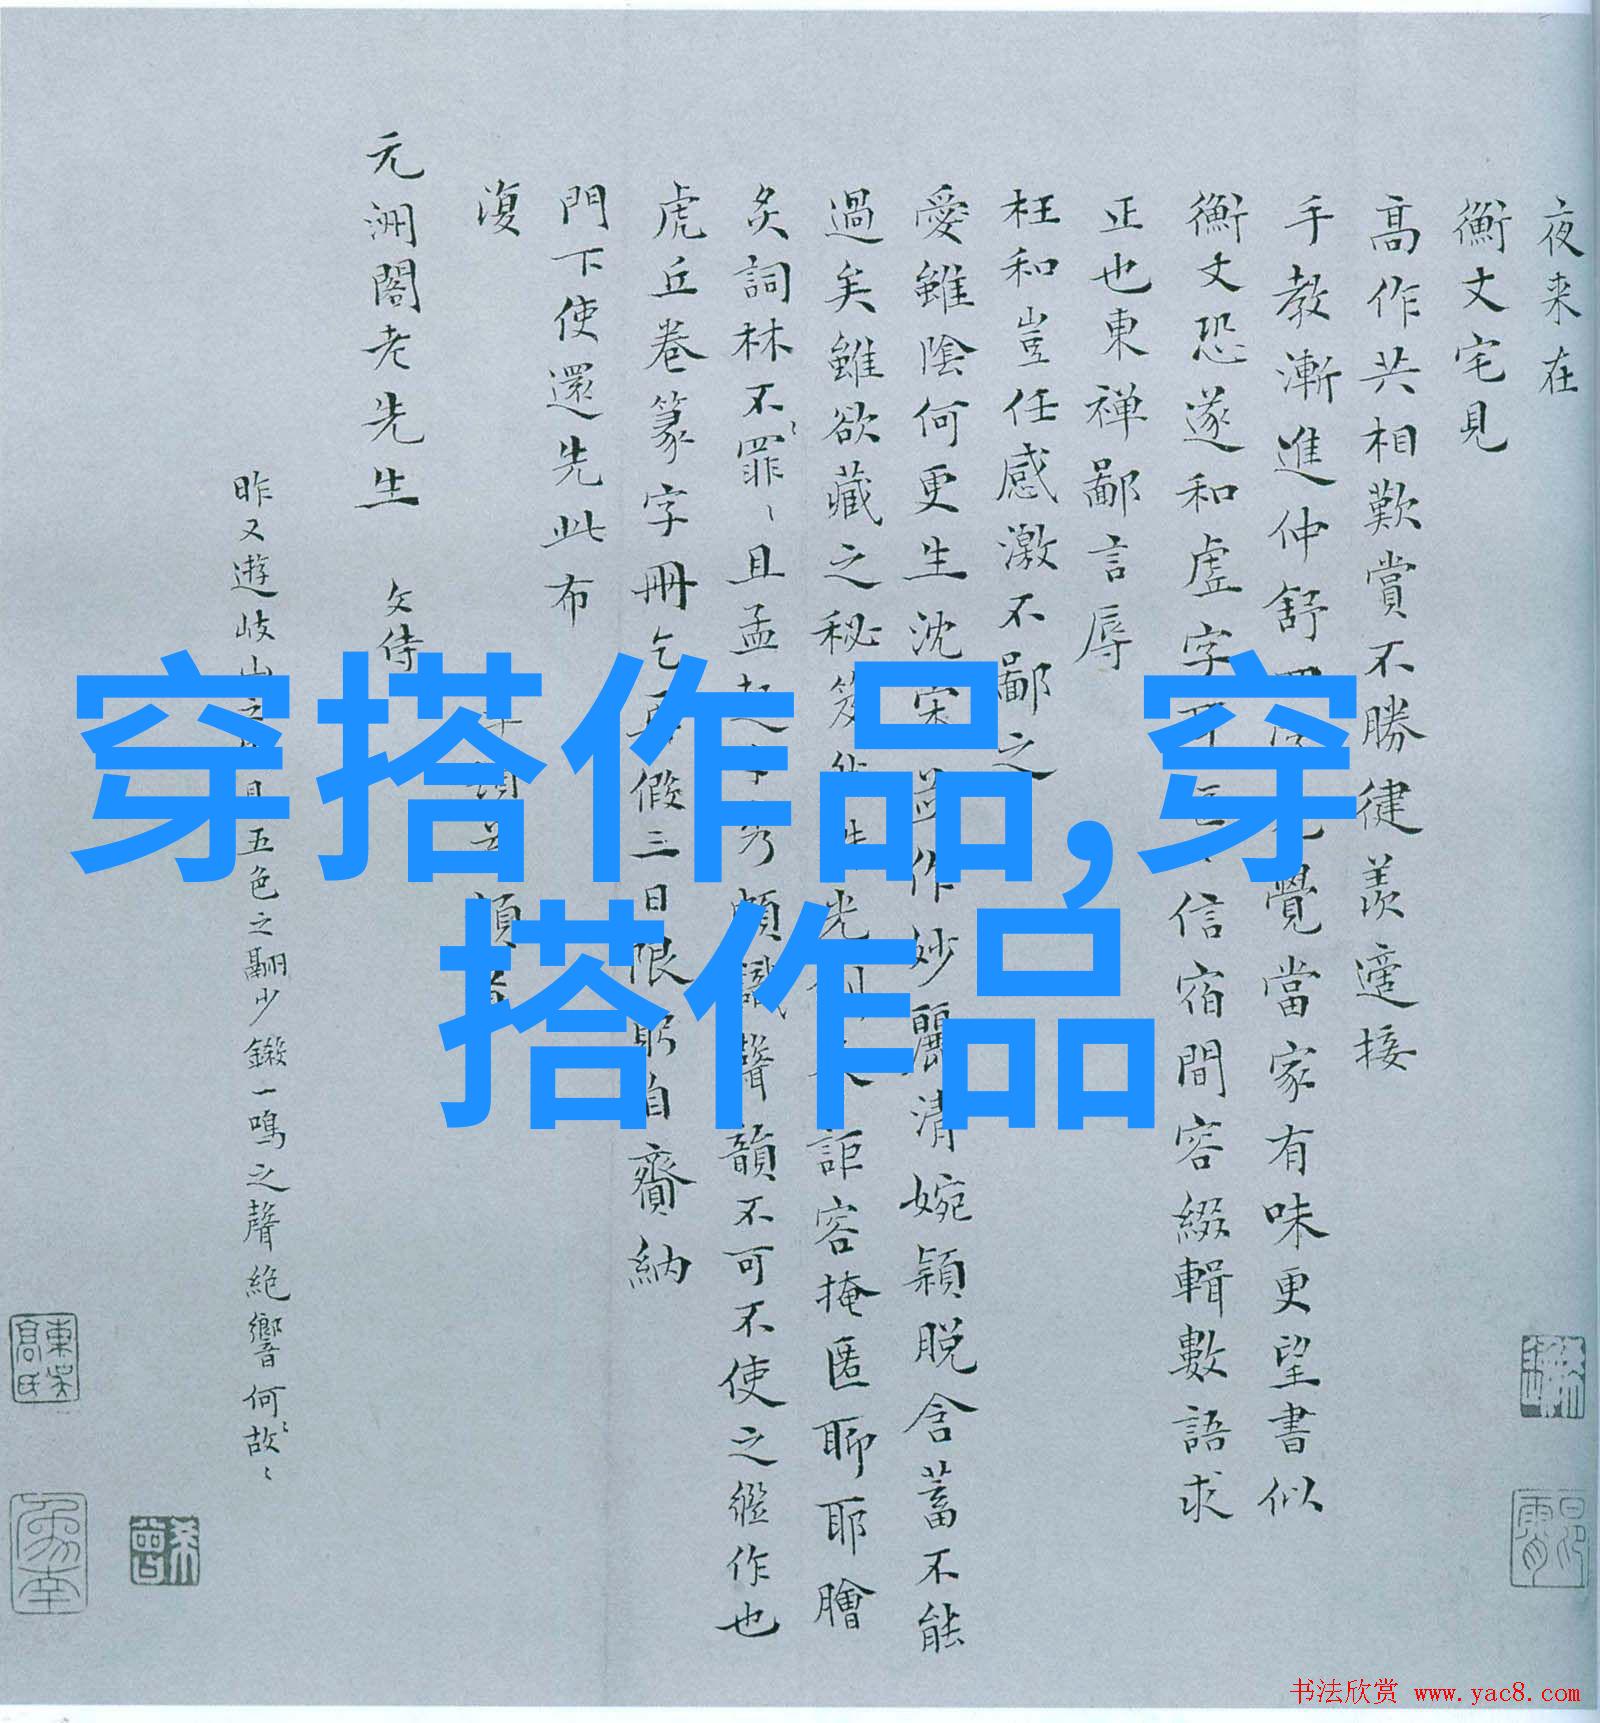 夜来在
衡丈宅見
高作共相歎賞不勝健羨適接
手教漸進仲舒
覺當家有味更望書似
衡丈恐遂和虚字
信宿間容綴輯數語求
正也東禅鄙言辱
枉和豈任感激不鄙之
愛雖陰何更生沈宋並作妙麗清婉穎脱含蓄不能
過矣雖欲藏之秘笈
光
詎容掩匿聊耶膾
炙詞林不罪〻且孟起
頗識聲韻不可不使之繼作也
虎丘卷篆字冊乞再假三日限躬自齎納
門下使還先此布
復
頓首
元洲閣老先生 文侍
昨又遊岐山之
五色之翮少鎩一鳴之聲絶響何故〻
穿搭作品,穿
搭作品
東吳
高氏
书法欣赏 www.yac8.com